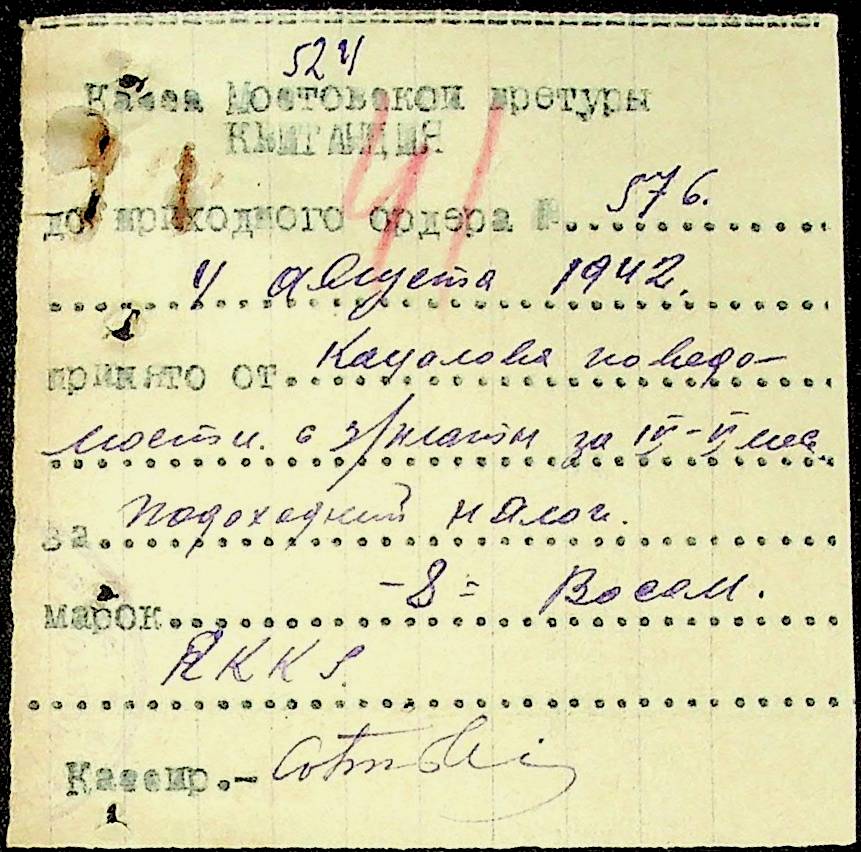 524
Касса Мостовской претуры
КВИТАНЦИЯ
41
до приходного ордера №. 576.
4 августа 1942.
принято от. Кацалова по ведо-
мости с з/платы за IV-VI мес.
за. подоходний налог.
марок. -8= Восем.
RKKS.
Кассир.-